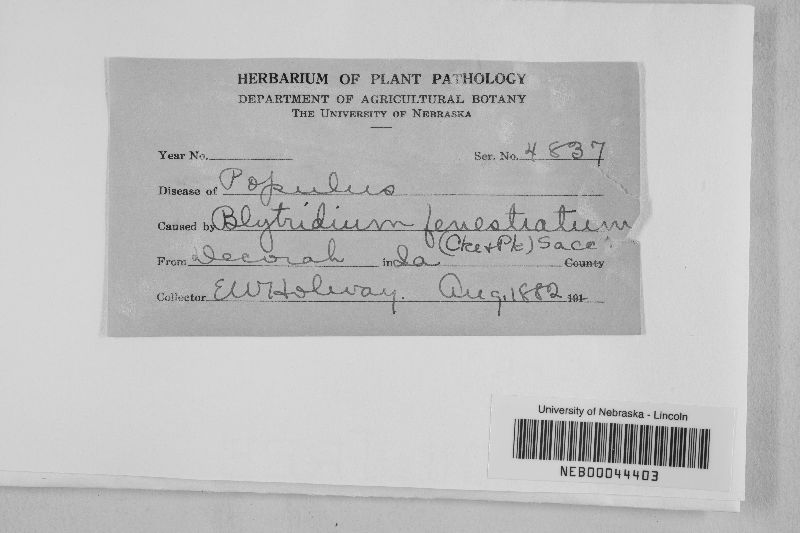 HERBARIUM OF PLANT PATHOLOGY
DEPARTMENT OF AGRICULTURAL BOTANY
THE UNIVERSITY OF NEBRASKA
Year No. Ser. No. 4837
Disease of Populus
Caused by Blytridium fenestratum
(Cke & Pk) Sacc
From Decorah in Ia County
Collector E W Holway. Aug, 1882 191
University of Nebraska - Lincoln
NEB00044403